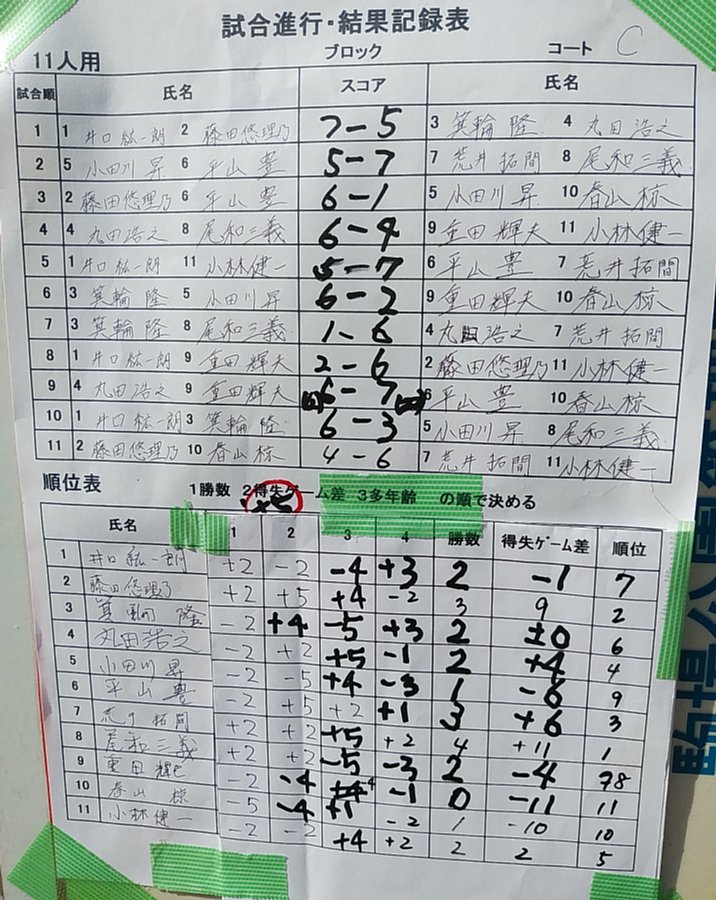 試合進行・結果記録表
11人用 ブロック コート C
試合順 氏名 スコア 氏名
1 1 井口紘一朗 2 藤田悠理乃 7-5 3 箕輪隆 4 丸田浩之
2 5 小田川昇 6 平山豊 5-7 7 荒井拓間 8 尾和三義
3 2 藤田悠理乃 6 平山豊 6-1 5 小田川昇 10 春山椋
4 4 丸田浩之 8 尾和三義 6-4 9 重田輝夫 11 小林健一
5 1 井口紘一朗 11 小林健一 5-7 6 平山豊 7 荒井拓間
6 3 箕輪隆 5 小田川昇 6-2 9 重田輝夫 10 春山椋
7 3 箕輪隆 8 尾和三義 1-6 4 丸田浩之 7 荒井拓間
8 1 井口紘一朗 9 重田輝夫 2-6 2 藤田悠理乃 11 小林健一
9 4 丸田浩之 9 重田輝夫 6-7 6 平山豊 10 春山椋
10 1 井口紘一朗 3 箕輪隆 6-3 5 小田川昇 8 尾和三義
11 2 藤田悠理乃 10 春山椋 4-6 7 荒井拓間 11 小林健一
順位表 1勝数 2得失ゲーム差 3多年齢 の順で決める
氏名 1 2 3 4 勝数 得失ゲーム差 順位
1 井口紘一朗 +2 -2 -4 +3 2 -1 7
2 藤田悠理乃 +2 +5 +4 -2 3 9 2
3 箕輪隆 -2 +4 -5 +3 2 ±0 6
4 丸田浩之 -2 +2 +5 -1 2 +4 4
5 小田川昇 -2 -5 +4 -3 1 -6 9
6 平山豊 -2 +5 +2 +1 3 +6 3
7 荒井拓間 +2 +2 +5 +2 4 +11 1
8 尾和三義 +2 +2 -5 -3 2 -4 8
9 重田輝 -2 -4 -1 0 -11 11
10 春山椋 -5 -4 +1 -2 1 -10 10
11 小林健一 -2 -2 +4 +2 2 2 5
駒場公